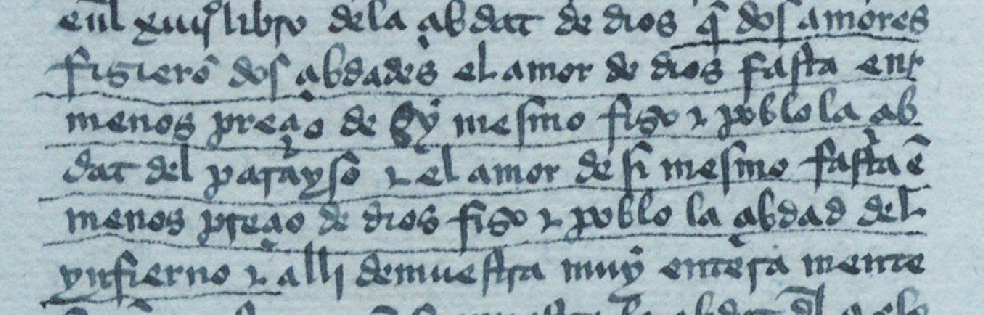 enl xiiijº libro dela çibdat de dios q̃ dos amores
fizierõ dos çibdades el amor de dios fasta en
menos preçio de sỹ mesmo fizo ⁊ poblo la çib
dat del parayso ⁊ el amor de si mesmo fasta ẽ
menos preçio de dios fizo ⁊ poblo la çibdad del
ynfierno ⁊ alli demuestra muy entera mente